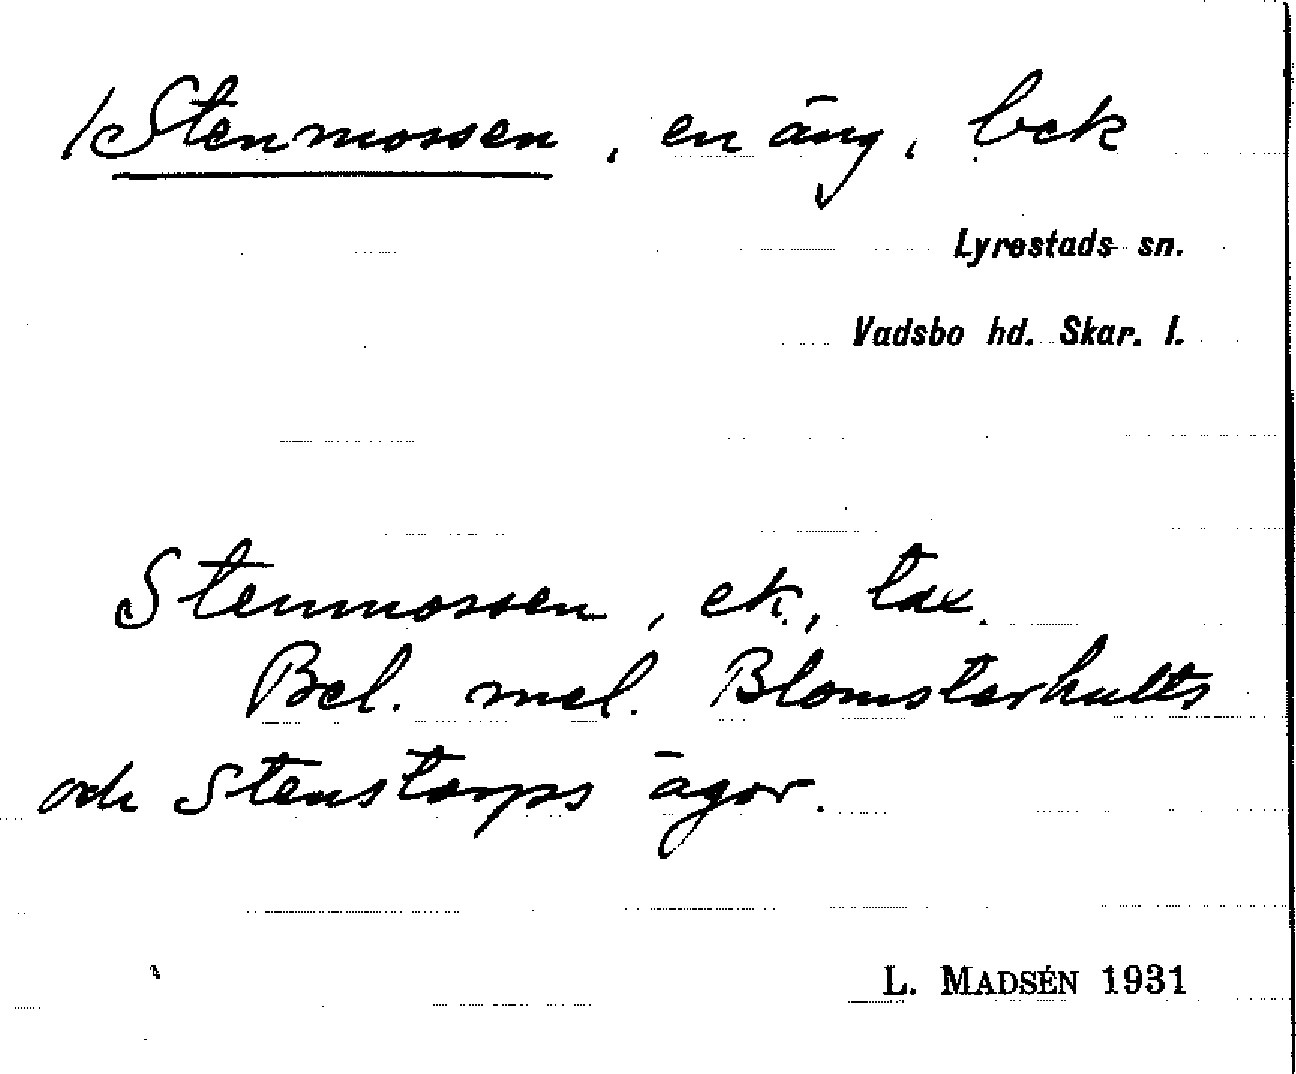 1 Stenmossen, en äng, bek
Lyrestads sn.
Vadsbo hd. Skar. l.
Stenmossen, ek., tax.
Bel. mel. Blomsterhults
och Stenstorps ägor.
L. MADSÉN 1931